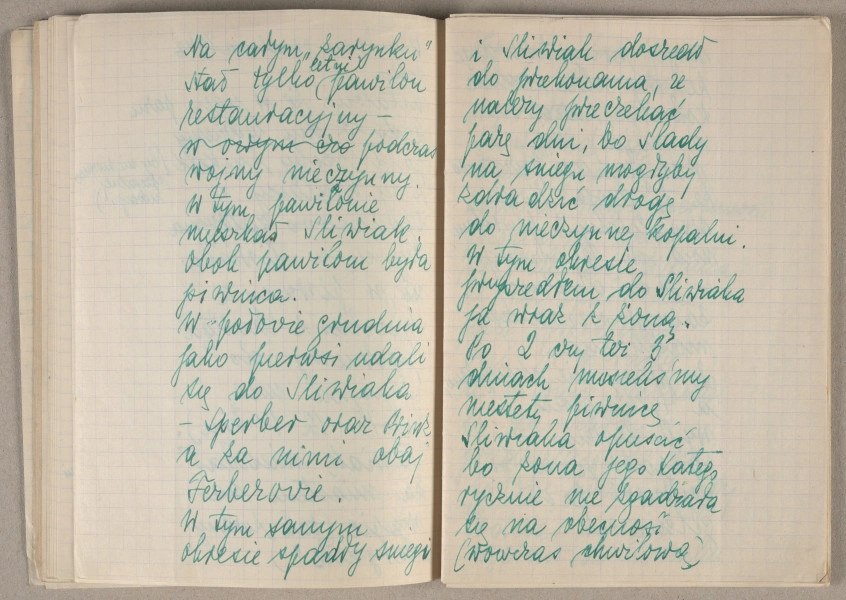 Na całym „Żarynku"
stał tylko letni pawilon
restauracyjny –
w owym czo podczas
wojny nieczynny.
W tym pawilonie
mieszkał Śliwiak.
Obok pawilonu była
piwnica.
W połowie grudnia
jako pierwsi udali
się do Śliwiaka
– Sperber oraz
a za nimi obaj
Ferberowie.
W tym samym
okresie spadły śniegi
i Śliwiak doszedł
do przekonania, że
należy przeczekać
parę dni, bo ślady
na śniegu mogłyby
zdradzić drogę
do nieczynnej kopalni.
W tym okresie
przyszedłem do Śliwiaka
ja wraz z żoną.
Po 2 czy też 3
dniach musieliśmy
niestety piwnicę
Śliwiaka opuścić
bo żona jego kateg
rycznie nie zgadzała
się na obecność
(wówczas chwilową)